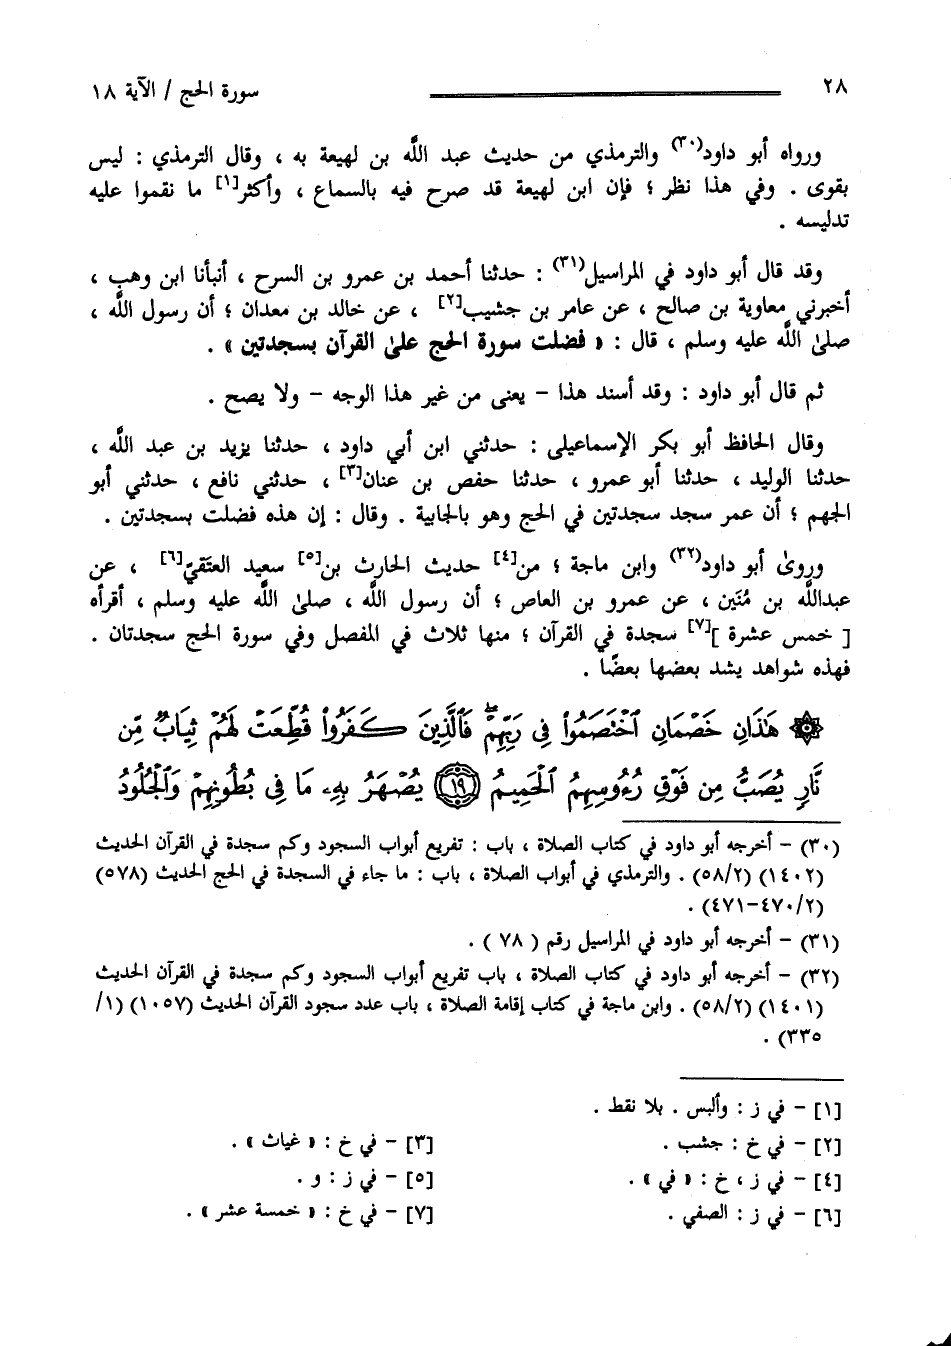 ٢٨ سورة الحج / الآية ١٨
ورواه أبو داود(٣٠) والترمذي من حديث عبد الله بن لهيعة به ، وقال الترمذي : ليس
بقوى . وفي هذا نظر ؛ فإن ابن لهيعة قد صرح فيه بالسماع ، وأكثر[١] ما نقموا عليه
تدليسه .
وقد قال أبو داود في المراسيل(٣١) : حدثنا أحمد بن عمرو بن السرح ، أنبأنا ابن وهب ،
أخبرني معاوية بن صالح ، عن عامر بن جشيب[٢] ، عن خالد بن معدان ؛ أن رسول الله ،
صلىٰ الله عليه وسلم ، قال : « فضلت سورة الحج علىٰ القرآن بسجدتين » .
ثم قال أبو داود : وقد أسند هذا – يعنى من غير هذا الوجه – ولا يصح .
وقال الحافظ أبو بكر الإسماعيلى : حدثني ابن أبي داود ، حدثنا يزيد بن عبد الله ،
حدثنا الوليد ، حدثنا أبو عمرو ، حدثنا حفص بن عنان[٣] ، حدثني نافع ، حدثني أبو
الجهم ؛ أن عمر سجد سجدتين في الحج وهو بالجابية . وقال : إن هذه فضلت بسجدتين .
وروىٰ أبو داود(٣٢) وابن ماجة ؛ من[٤] حديث الحارث بن[٥] سعيد العتَقيّ[٦] ، عن
عبدالله بن مُنَين ، عن عمرو بن العاص ؛ أن رسول الله ، صلىٰ الله عليه وسلم ، أقرأه
[ خمس عشرة ][٧] سجدة في القرآن ؛ منها ثلاث في المفصل وفي سورة الحج سجدتان .
فهذه شواهد يشد بعضها بعضًا .
۞ هَٰذَانِ خَصْمَانِ ٱخْتَصَمُوا۟ فِى رَبِّهِمْ ۖ فَٱلَّذِينَ كَفَرُوا۟ قُطِّعَتْ لَهُمْ ثِيَابٌ مِّن
نَّارٍ يُصَبُّ مِن فَوْقِ رُءُوسِهِمُ ٱلْحَمِيمُ ﴿١٩﴾ يُصْهَرُ بِهِۦ مَا فِى بُطُونِهِمْ وَٱلْجُلُودُ
(٣٠) – أخرجه أبو داود في كتاب الصلاة ، باب : تفريع أبواب السجود وكم سجدة في القرآن الحديث
(١٤٠٢) (٥٨/٢) . والترمذي في أبواب الصلاة ، باب : ما جاء في السجدة في الحج الحديث (٥٧٨)
(٤٧٠/٢–٤٧١) .
(٣١) – أخرجه أبو داود في المراسيل رقم ( ٧٨ ) .
(٣٢) – أخرجه أبو داود في كتاب الصلاة ، باب تفريع أبواب السجود وكم سجدة في القرآن الحديث
(١٤٠١) (٥٨/٢) . وابن ماجة في كتاب إقامة الصلاة ، باب عدد سجود القرآن الحديث (١٠٥٧) (١/
٣٣٥) .
[١] – في ز : وألبس . بلا نقط .
[٢] – في خ : جشب . [٣] – في خ : « غياث » .
[٤] – في ز ، خ : « في » . [٥] – في ز : و .
[٦] – في ز : الصفي . [٧] – في خ : « خمسة عشر » .